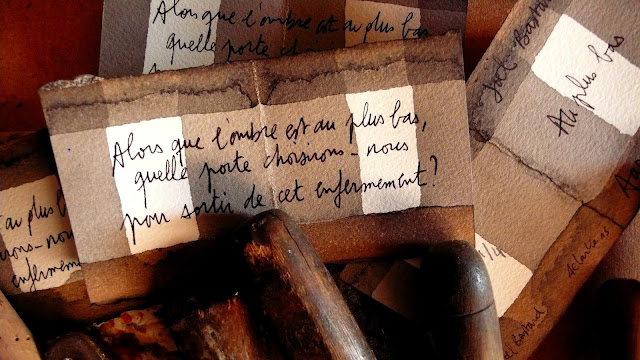 Alors que l'ombre est au plus bas,
quelle porte
Alors que l'ombre est au plus bas,
quelle porte choisirons-nous
pour sortir de cet enfermement?
au plus b
irons-nou
enfermem
Joël Bastard
Au plus bas
1/4
Bastard